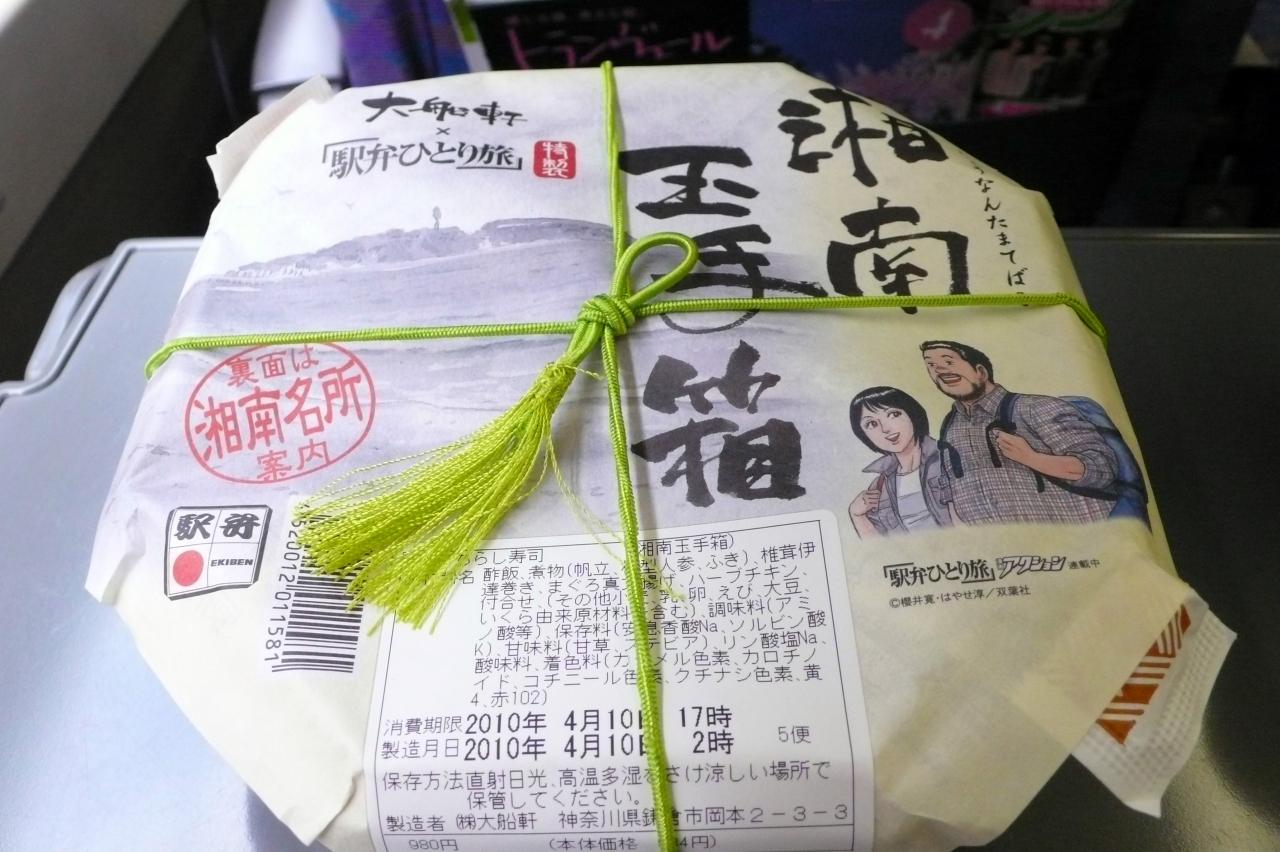 トランヴェール
大船軒
×
「駅弁ひとり旅」
特製
湘南
玉手箱
うなんたまてば
裏面は
湘南名所
案内
駅弁
EKIBEN
5201201158
らし寿司
湘南玉手箱)
酢飯、煮物(帆立、型人参、ふき)、椎茸伊
達巻き、まぐろ真揚げ、ハーブチキン、
付合せ、(その他小、乳、卵、えび、大豆、
いくら由来原材料含む)、調味料(アミ
ノ酸等)、保存料(安息香酸Na、ソルビン酸
K)、甘味料(甘草、テビア)、リン酸塩Na、
酸味料、着色料(カメル色素、カロチノ
イド、コチニール色、クチナシ色素、黄
4、赤102)
消費期限 2010年 4月10日 17時
製造月日 2010年 4月10日 2時
5便
保存方法 直射日光、高温多湿をさけ涼しい場所で
保管してください。
製造者 ㈱大船軒 神奈川県鎌倉市岡本2-3-3
980円 (本体価格 4円)
「駅弁ひとり旅」アクション連載中
©櫻井寛・はやせ淳/双葉社